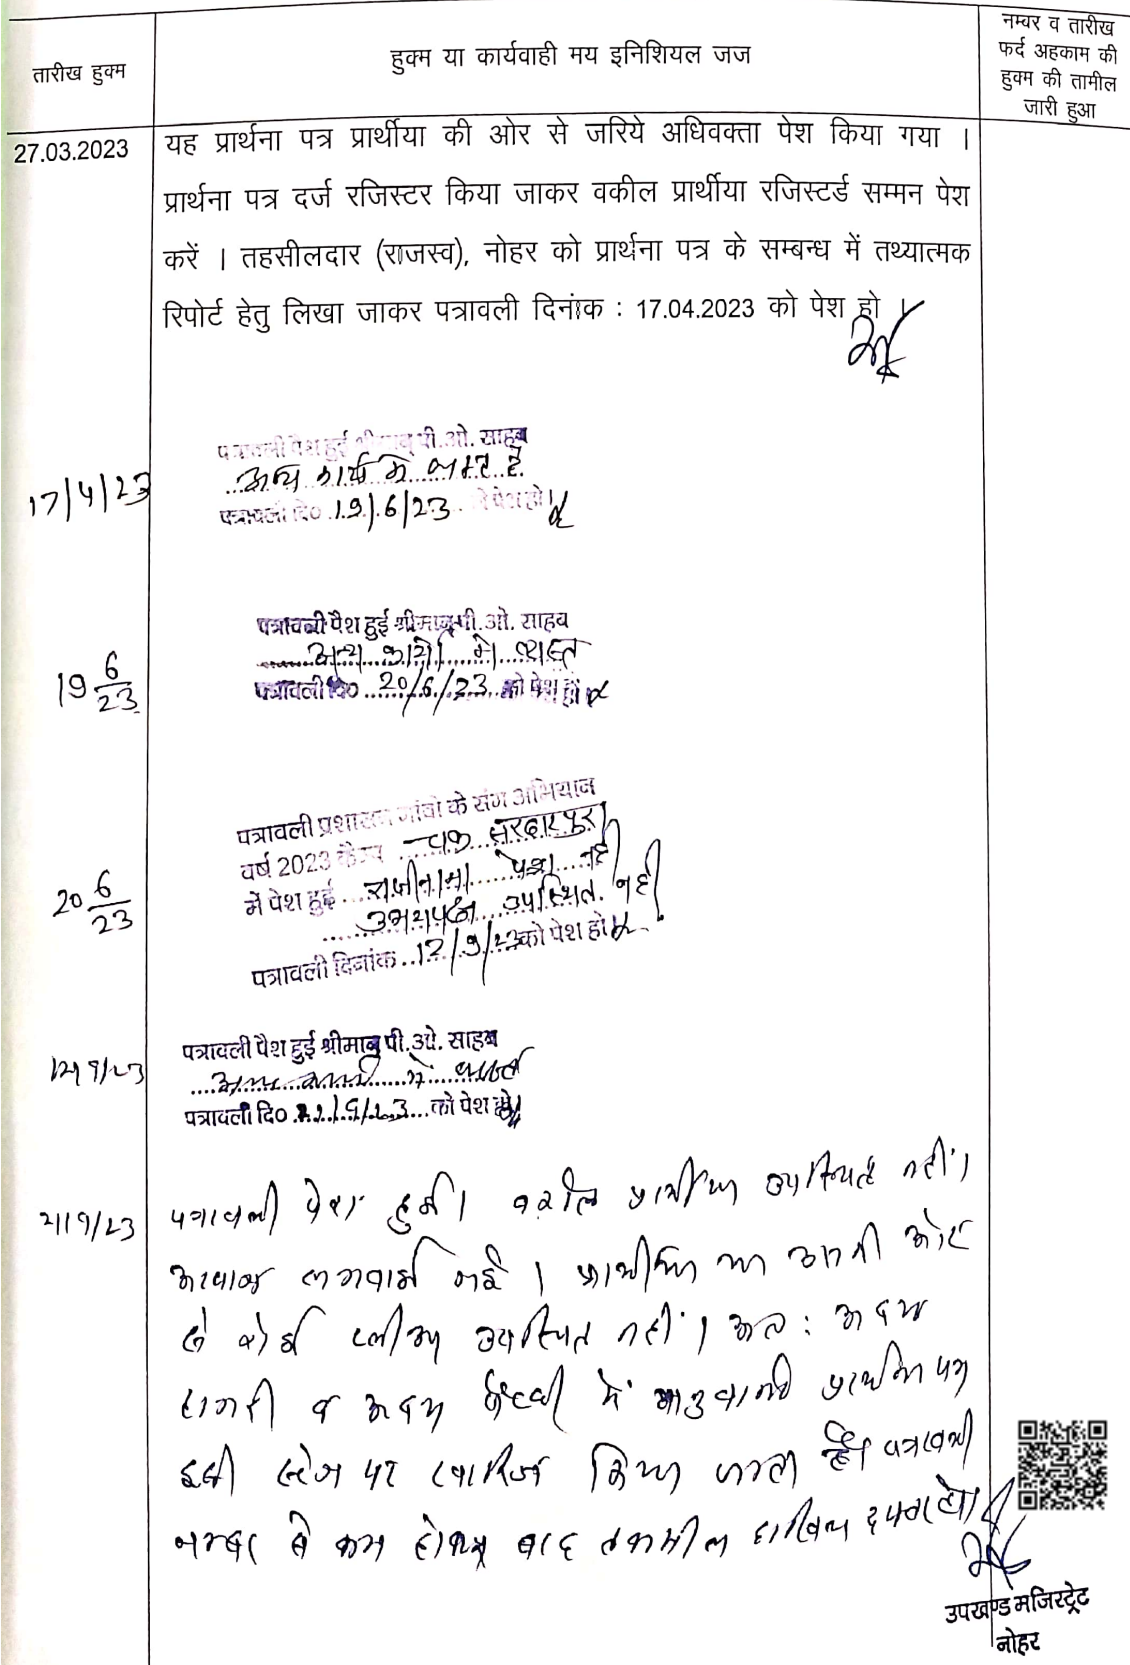 तारीख हुक्म
हुक्म या कार्यवाही मय इनिशियल जज
नम्बर व तारीख
फर्द अहकाम की
हुक्म की तामील
जारी हुआ
27.03.2023
यह प्रार्थना पत्र प्रार्थीया की ओर से जरिये अधिवक्ता पेश किया गया ।
प्रार्थना पत्र दर्ज रजिस्टर किया जाकर वकील प्रार्थीया रजिस्टर्ड सम्मन पेश
करें । तहसीलदार (राजस्व), नोहर को प्रार्थना पत्र के सम्बन्ध में तथ्यात्मक
रिपोर्ट हेतु लिखा जाकर पत्रावली दिनांक : 17.04.2023 को पेश हो
17/4/23
पत्रावली पेश हुई श्रीमान् पी.ओ. साहब
अन्य कार्य में व्यस्त है
पत्रावली दि० 19/6/23 को पेश हो
19 6/23
पत्रावली पैश हुई श्रीमान् पी.ओ. साहब
अन्य कार्यो में व्यस्त
पत्रावली दि० 20/6/23 को पेश हो
20 6/23
पत्रावली प्रशासन गांवो के संग अभियान
वर्ष 2023 कैम्प चक सरदारपुरा
में पेश हुई राजीनामा पेश नही
उभयपक्ष उपस्थित नही
पत्रावली दिनांक 12/9/23 को पेश हो
12/9/23
पत्रावली पैश हुई श्रीमान् पी.ओ. साहब
अन्य कार्यो में व्यस्त
पत्रावली दि० /9/23 को पेश हो
/9/23
पत्रावली पेश हुई। वकील प्रार्थीया उपस्थित नहीं।
आवाज लगवाई गई । प्रार्थीया या उसकी ओर
से कोई उपस्थित नहीं। अतः अदम
हाजरी व अदम पैरवी में प्रार्थना पत्र
इसी स्टेज पर खारिज किया जाता है। पत्रावली
नम्बर से कम होकर बाद तकमील दाखिल दफ्तर हो।
उपखण्ड मजिस्ट्रेट
नोहर